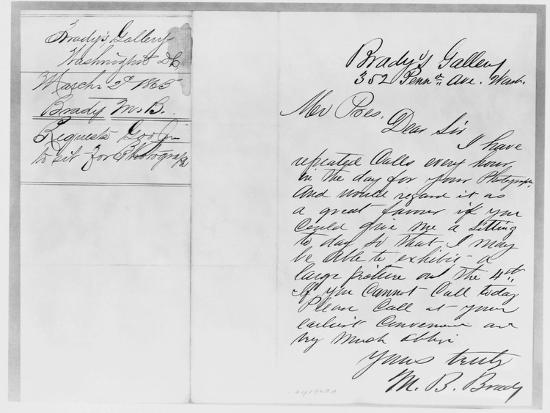 Brady's Gallery
Washington DC
March 2d 1865
Brady M. B.
Requests
to sit for Photograph
Brady's Gallery
352 Penna Ave. Wash.
Mr Pres.
Dear Sir
I have
repeated Calls every hour
in the day for your Photograph
and would regard it as
a great favor if you
Could give me a sitting
to day so that I may
be able to exhibit a
large picture on the 4th.
If you Cannot Call today
Please Call at your
earliest Convenience and
very Much oblige
Yours truly
M. B. Brady